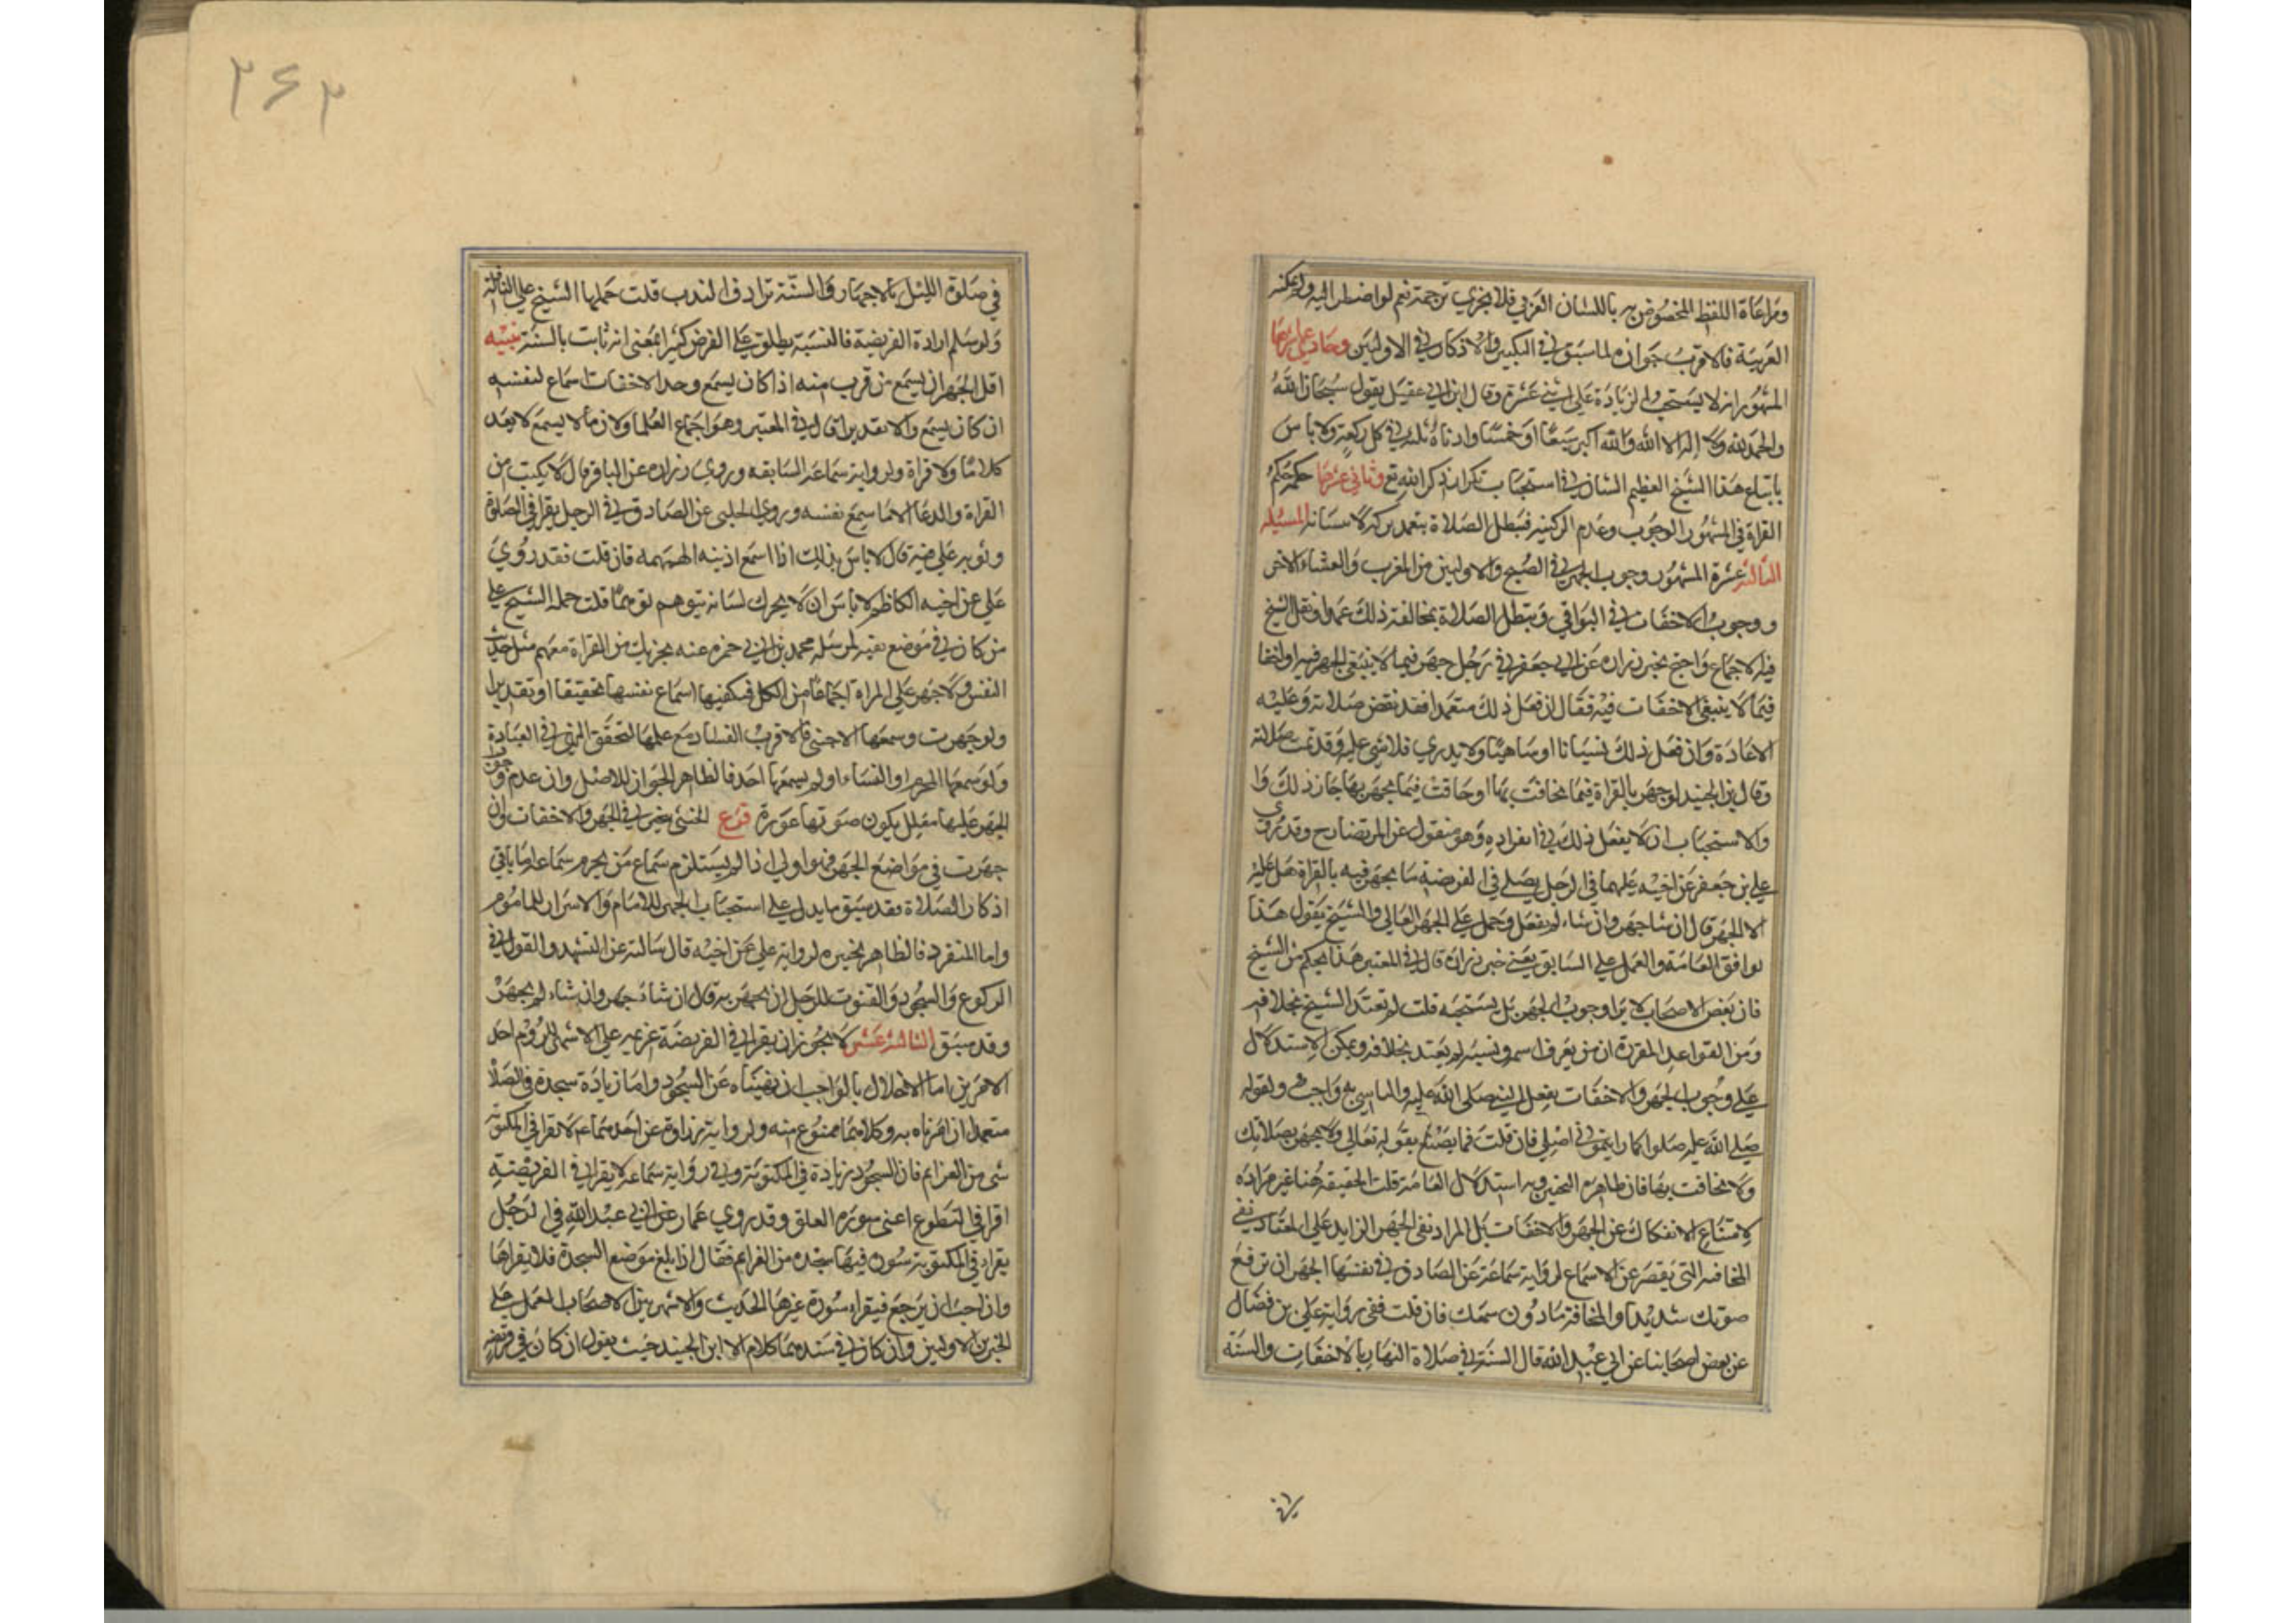 ومراعاة اللفظ المخصوص به باللسان العربي فلا يجزي ترجمته نعم لو اضطر اليه ولم يمكنه
العربية فالاقرب جوازه لما سبق في التكبير والاذكار في الاوليين وحادي عشرها
المشهور انه لا يستحب الزيادة على اثني عشرة وقال ابن ابي عقيل يقول سبحان الله
والحمد لله ولا اله الا الله والله اكبر سبعا او خمسا وادناه ثلث في كل ركعة ولا باس
باتباع هذا الشيخ العظيم الشان في استحباب تكرار ذكر الله تع وثاني عشرها حكم
القراة في المشهور الوجوب وعدم الركنيه فتبطل الصلاة بتعمد تركه لا نسيانه المسئله
الثالثه عشرة المشهور وجوب الجهر في الصبح والاوليين من المغرب والعشاء الاخر
ووجوب الاخفات في البواقي وتبطل الصلاة بمخالفة ذلك عمدا ونقل الشيخ
فيه الاجماع واحتج بخبر زراره عن ابي جعفر في رجل جهر فيما لا ينبغي الجهر فيه او اخفا
فيما لا ينبغي الاخفات فيه فقال ان فعل ذلك متعمدا فقد نقض صلاته وعليه
الاعادة وان فعل ذلك نسيانا او ساهيا ولا يدري فلا شي عليه وقد تمت صلاته
وقال ابن الجنيد لو جهر بالقراة فيما يخافت بها او خافت فيما يجهر بها جاز ذلك وا
والاستحباب ان لا يفعل ذلك في انفراده وهو منقول عن المرتضا رح وقد روي
علي بن جعفر عن اخيه عليهما في الرجل يصلي في الفريضة ما يجهر فيه بالقراة هل عليه
الا الجهر قال ان شا جهر وان شاء لم يفعل وحمل على الجهر العالي والشيخ يقول هذا
لوافق العامة والعمل على السابق يعني خبر زراره قال في المعتبر هذا تحكم من الشيخ
فان بعض الاصحاب لا يرا وجوب الجهر بل يستحبه قلت لم يعتد الشيخ بخلافه
ومن القواعد المقررة ان من يعرف اسمه ونسبه لم يعتد بخلافه ويمكن الاستدلال
على وجوب الجهر والاخفات بفعل النبي صلى الله عليه والتاسي به واجب ولقوله
صلى الله عليه صلوا كما رايتموني اصلي فان قلت فما يصنع بقوله تعالى ولا تجهر بصلاتك
ولا تخافت بها فان ظاهره التخيير وبه استدلال العامة قلت الحقيقة هنا غير مراده
لامتناع الانفكاك عن الجهر والاخفات بل المراد نفي الجهر الزايد على المعتاد ونفي
المخافته التي يقصر عن الاسماع لرواية سماعة عن الصادق في تفسيرها الجهر ان ترفع
صوتك شديدا والمخافة ما دون سمعك فان قلت ففي رواية علي بن فضال
عن بعض اصحابنا عن ابي عبد الله قال السنة في صلاة النهار بالاخفات والسنة
في صلوة الليل بالاجهار والسنة ترادف الندب قلت حملها الشيخ على النافلة
ولو سلم ارادة الفريضة فالنسبة يطلق على الفرض كثيرا بمعنى انه ثابت بالسنة تنبيه
اقل الجهر ان يسمع من قرب منه اذا كان يسمع وحد الاخفات اسماع لنفسه
ان كان يسمع والا تقديرا قال في المعتبر وهو اجماع العلما ولان ما لا يسمع لا يعد
كلاما ولا قراة ولرواية سماعة السابقه وروي زراره عن الباقر قال لا يكتب من
القراة والدعا الا ما سمع نفسه وروي الحلبي عن الصادق في الرجل يقرا في الصلوة
وثوبه على فيه قال لا باس بذلك اذا اسمع اذنيه الهمهمه فان قلت فقد روي
علي عن اخيه الكاظم لا باس ان لا يحرك لسانه يتوهم توهما قلت حمله الشيخ على
من كان في موضع تقيه لمرسلة محمد بن ابي حمزه عنه يجزيك من القراة معهم مثل حديث
النفس ولا جهر على المراة اجماعا من الكل فيكفيها اسماع نفسها تحقيقا او تقديرا
ولو جهرت وسمعها الاجنبي فالاقرب الفساد مع علمها لتحقق النهي في العبادة
ولو سمعها المحرم او النساء او لم يسمعها احد فالظاهر الجواز للاصل وان عدم وجوب
الجهر عليها معلل بكون صوتها عورة فرع الخنثى يتخير في الجهر والاخفات وان
جهرت في مواضع الجهر فهو اولى اذا لم يستلزم سماع من يحرم سماعه اما باقي
اذكار الصلاة فقد سبق ما يدل على استحباب الجهر للامام والاسرار للماموم
واما المنفرد فالظاهر تخييره لرواية علي عن اخيه قال سالته عن التشهد والقول في
الركوع والسجود والقنوت للرجل ان يجهر به قال ان شاء جهر وان شاء لم يجهر
وقد سبق الثالثة عشر لا يجوز ان يقرا في الفريضة عزيمه على الاشهر للزوم احد
الامرين اما الاخلال بالواجب ان نهيناه عن السجود واما زيادة سجدة في الصلاة
متعمدا ان امرناه به وكلاهما ممنوع منه ولرواية زرارة عن احدهما عم لا تقرا في المكتوبة
شي من العزايم فان السجود زيادة في المكتوبة وفي رواية سماعة لا يقرا في الفريضة
اقرا في التطوع اعني سورة العلق وقد روي عمار عن ابي عبد الله في الرجل
يقرا في المكتوبة سورة فيها سجده من العزايم فقال اذا بلغ موضع السجدة فلا يقراها
وان احب ان يرجع فيقرا سورة غيرها الحديث والاشهر بين الاصحاب العمل على
الخبرين الاوليين وان كان في سندهما كلام الا ابن الجنيد حيث يقول ان كان في فريضة
۲۶۲